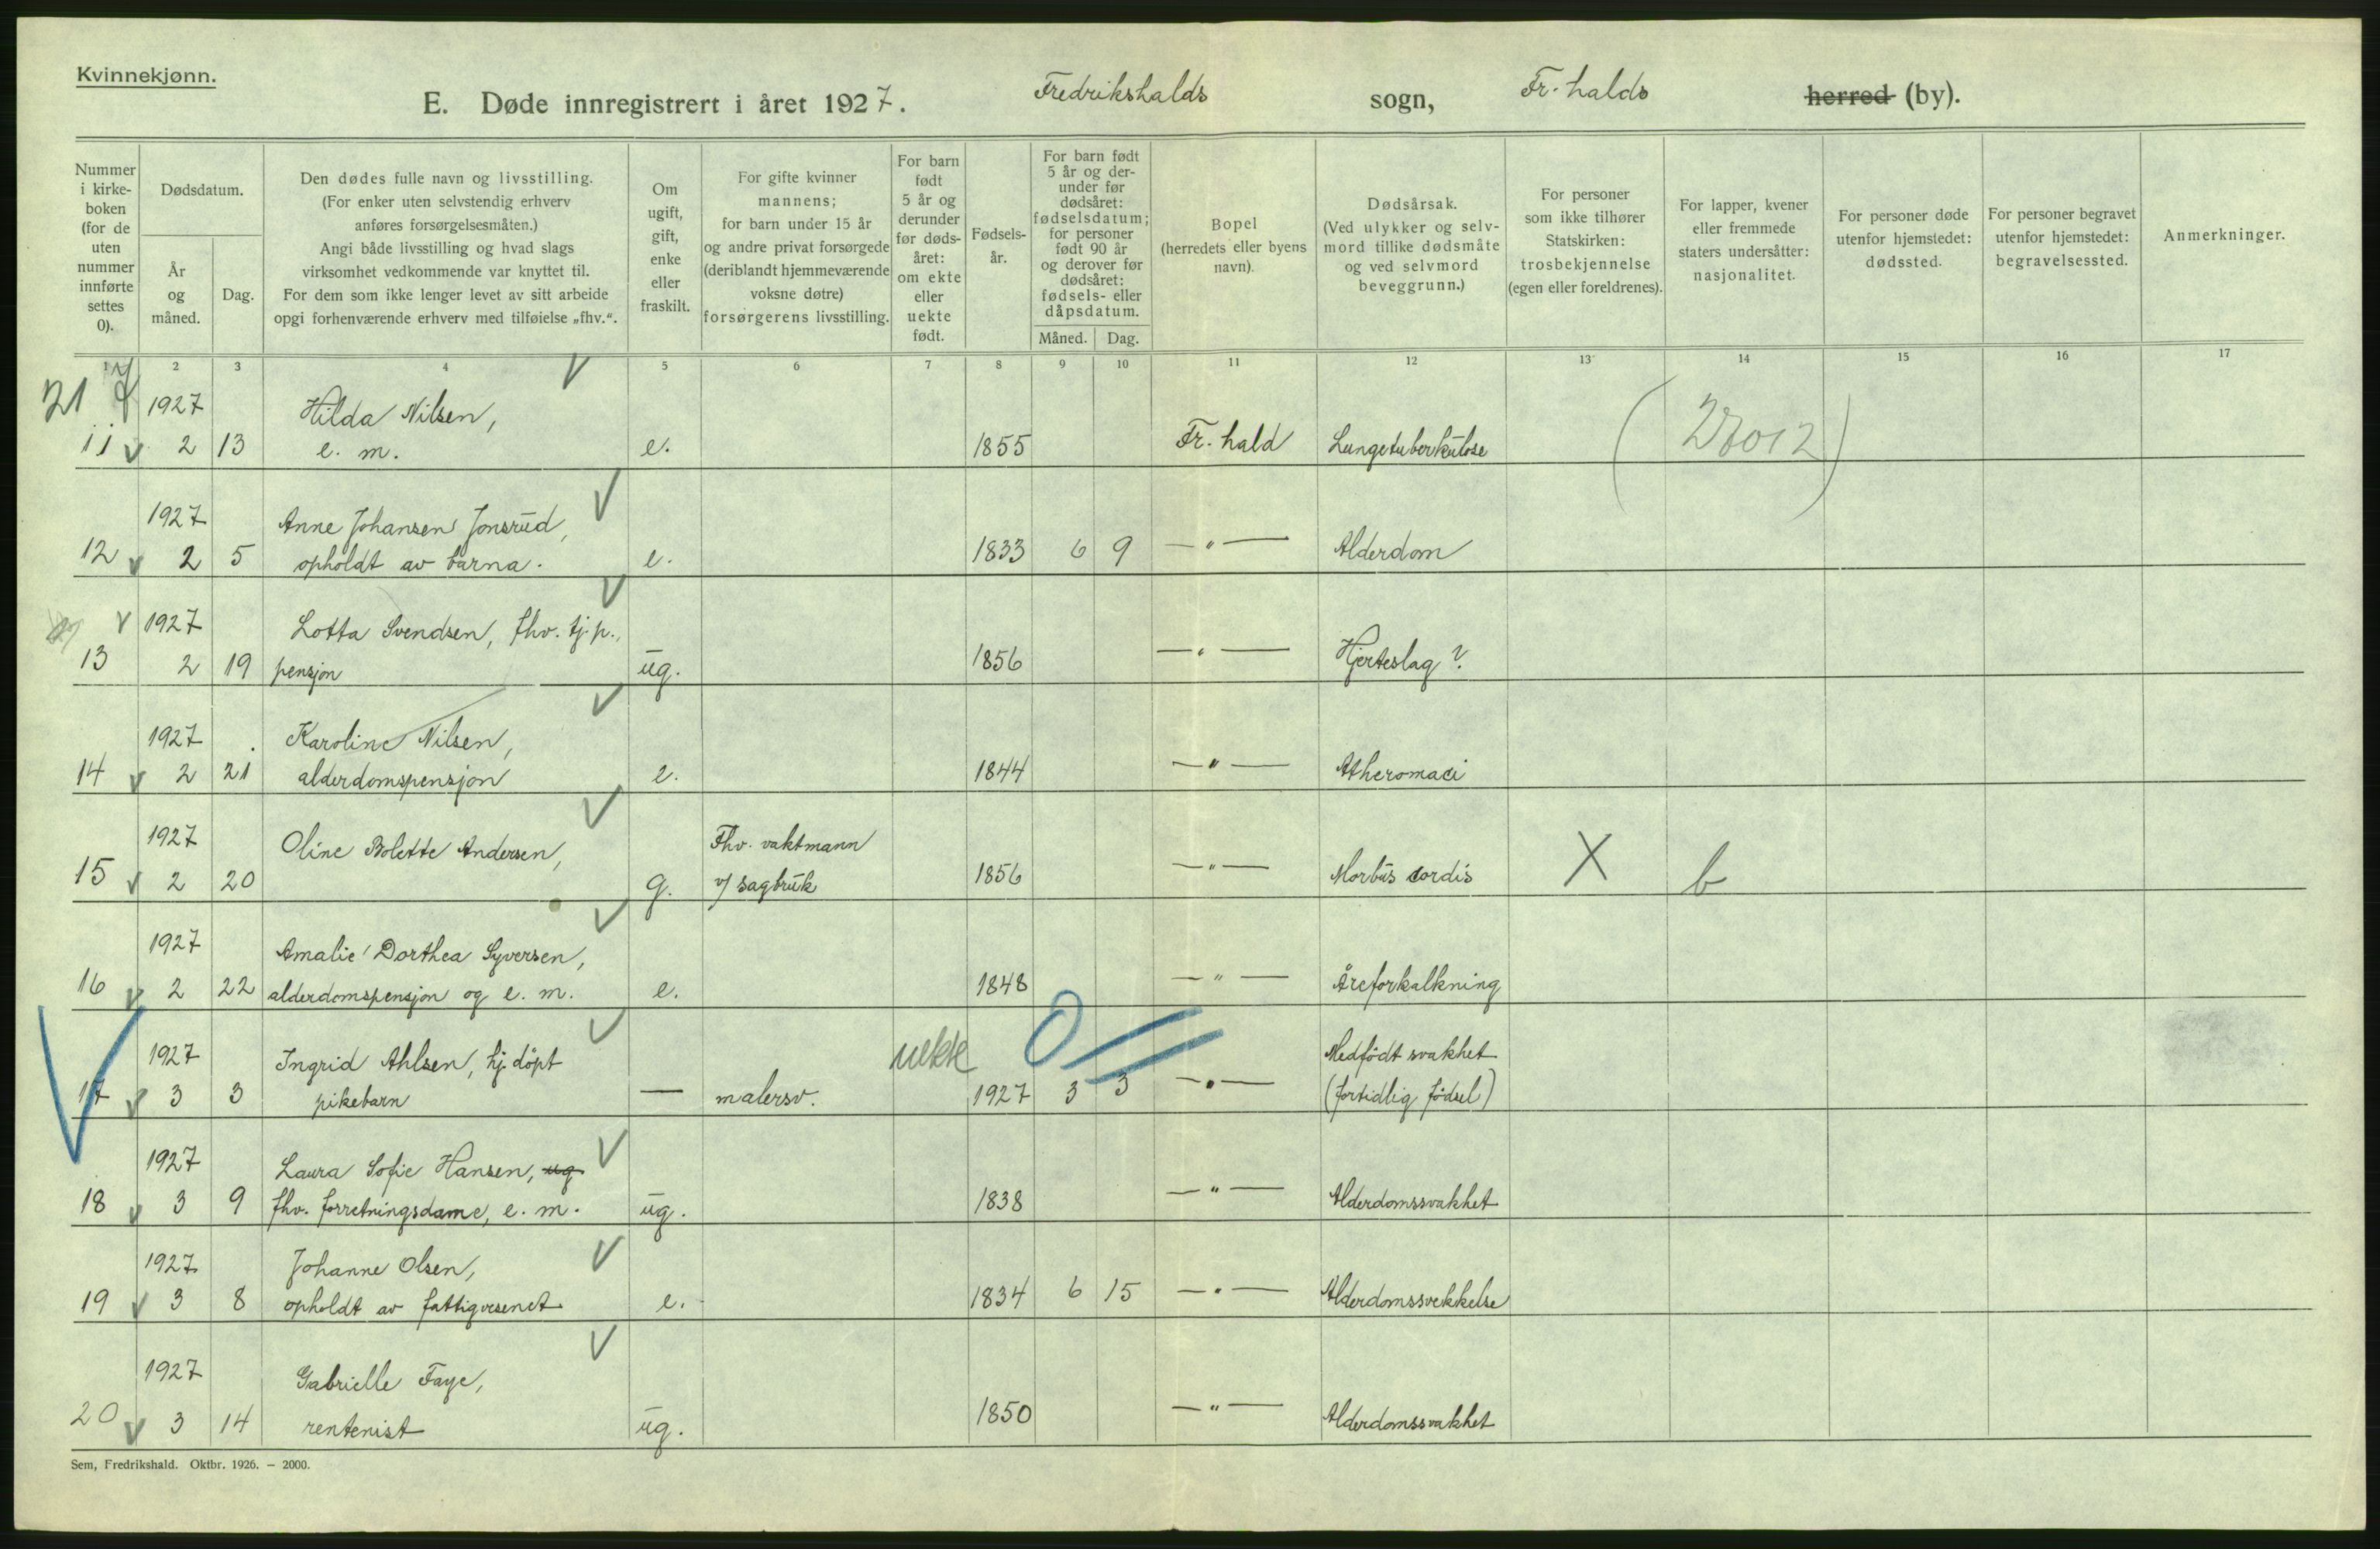 Kvinnekjønn.
E. Døde innregistrert i året 1927. Fredrikshalds sogn, Fr. halds herred (by).
Nummer
i kirke-
boken
(for de
uten
nummer
innførte
settes
0).
Dødsdatum.
År
og
måned.
Dag.
Den dødes fulle navn og livsstilling.
(For enker uten selvstendig erhverv
anføres forsørgelsesmåten.)
Angi både livsstilling og hvad slags
virksomhet vedkommende var knyttet til.
For dem som ikke lenger levet av sitt arbeide
opgi forhenværende erhverv med tilføielse „fhv.“.
Om
ugift,
gift,
enke
eller
fraskilt.
For gifte kvinner
mannens;
for barn under 15 år
og andre privat forsørgede
(deriblandt hjemmeværende
voksne døtre)
forsørgerens livsstilling.
For barn
født
5 år og
derunder
før døds-
året:
om ekte
eller
uekte
født.
Fødsels-
år.
For barn født
5 år og der-
under før
dødsåret:
fødselsdatum;
for personer
født 90 år
og derover før
dødsåret:
fødsels- eller
dåpsdatum.
Måned. Dag.
Bopel
(herredets eller byens
navn).
Dødsårsak.
(Ved ulykker og selv-
mord tillike dødsmåte
og ved selvmord
beveggrunn.)
For personer
som ikke tilhører
Statskirken:
trosbekjennelse
(egen eller foreldrenes).
For lapper, kvener
eller fremmede
staters undersåtter:
nasjonalitet.
For personer døde
utenfor hjemstedet:
dødssted.
For personer begravet
utenfor hjemstedet:
begravelsessted.
Anmerkninger.
1 2 3 4 5 6 7 8 9 10 11 12 13 14 15 16 17
21 1927 Hilda Nilsen,
11 2 13 e. m. e. 1855 Fr. hald Lungetuberkulose
1927 Anne Johansen Jonsrud,
12 2 5 opholdt av barna. e. 1833 6 9 — " — Alderdom
1927 Lotta Svendsen, fhv. tj. p.,
13 2 19 pensjon ug. 1856 — " — Hjerteslag ?
1927 Karoline Nilsen,
14 2 21 alderdomspensjon e. 1844 — " — Atheromaci
1927 Oline Bolette Andersen, Fhv. vaktmann
15 2 20 g. v/ sagbruk 1856 — " — Morbus cordis X b
1927 Amalie Dorthea Syversen,
16 2 22 alderdomspensjon og e. m. e. 1848 — " — Åreforkalkning
1927 Ingrid Ahlsen, hj. döpt uekte 0 Medfödt svakhet
17 3 3 pikebarn — malersv. 1927 3 3 — " — (fortidlig födsel)
1927 Laura Sofie Hansen, ug
18 3 9 fhv. forretningsdame, e. m. ug. 1838 — " — Alderdomssvakhet
1927 Johanne Olsen,
19 3 8 opholdt av fattigvesenet e. 1834 6 15 — " — Alderdomssvekkelse
1927 Gabrielle Faye,
20 3 14 rentenist ug. 1850 — " — Alderdomssvakhet
Sem, Fredrikshald. Oktbr. 1926. – 2000.